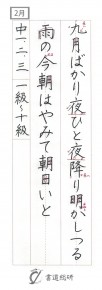 2月
九月ばかり夜ひと夜降り明かしつる
雨の今朝はやみて朝日いと
中一、二、三　一級〜十級
書道総研